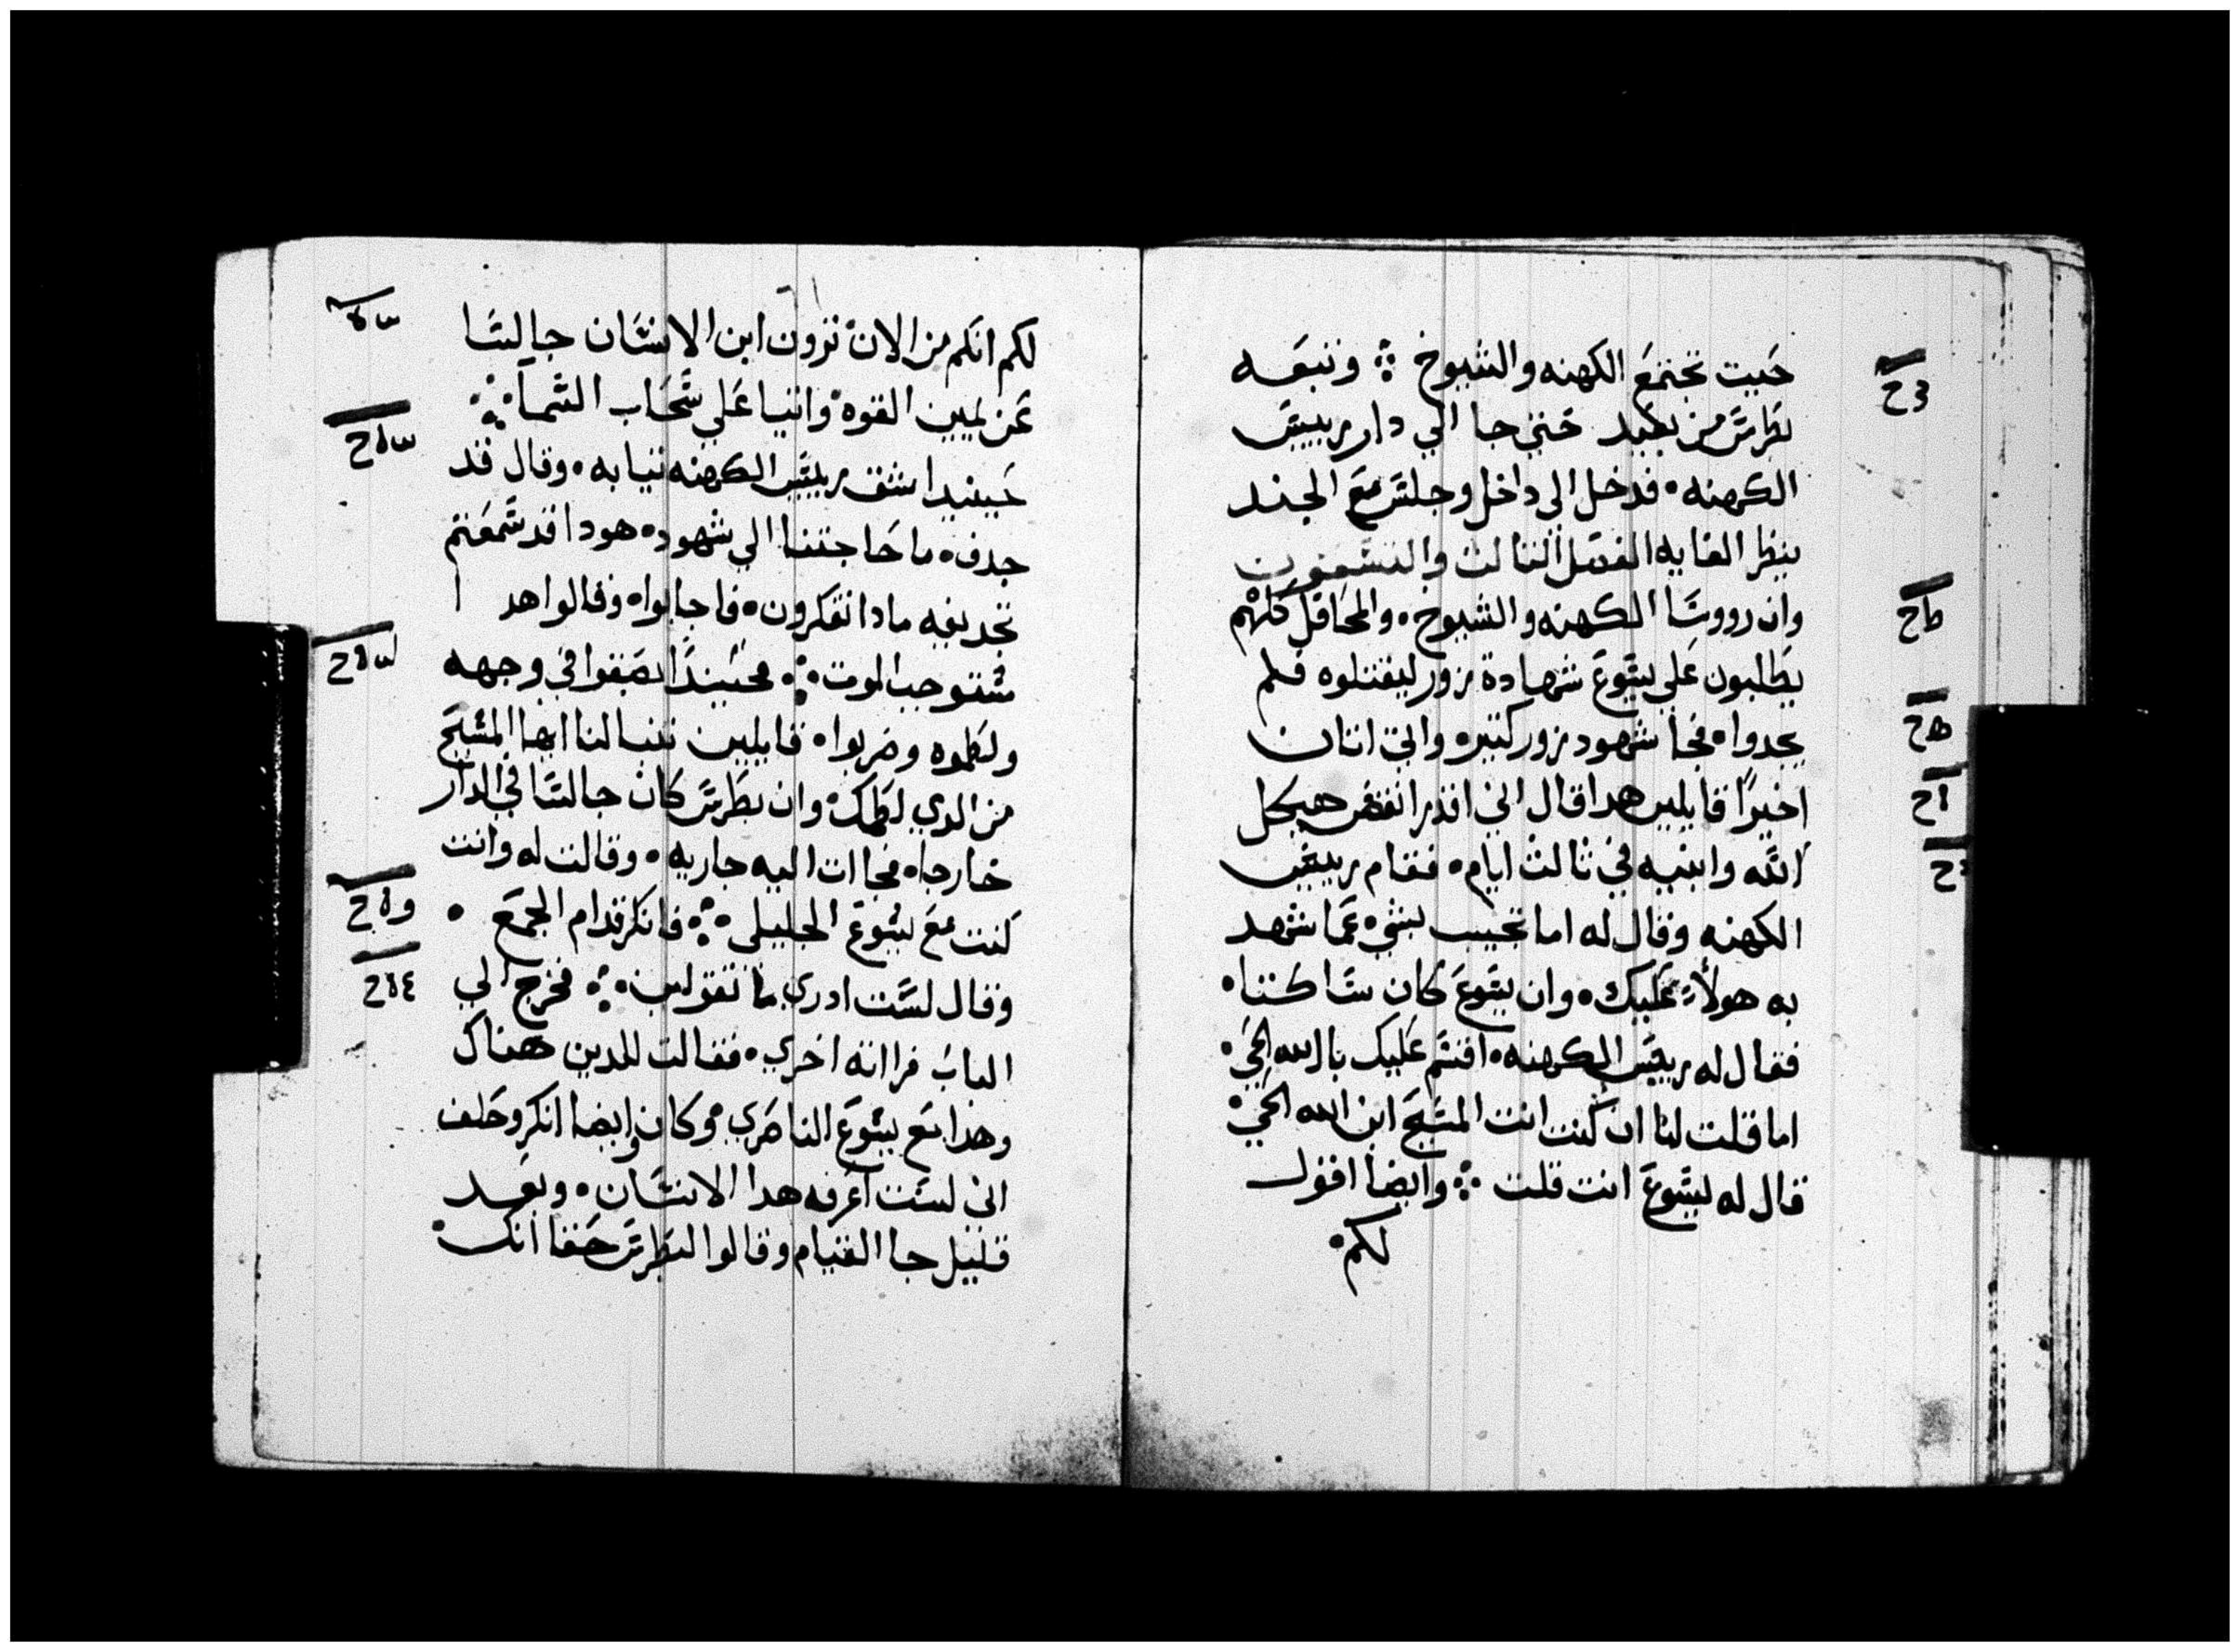 حيت تجتمع الكهنه والشيوخ ؞ وتبعه
بطرس من بعيد حتي جا الي دار رييس
الكهنه • فدخل الي داخل وجلس مع الجند
ينظر الغايه الفصل التالت والتسعون
وان رووسا الكهنه والشيوخ • والمحافل كلهم
يطلبون علي يسوع شهادة زور ليقتلوه فلم
يجدوا • فجا شهود زور كتيره واتي اتنان
اخيرًا قايلين هدا قال اني اقدر انقض هيكل
الله وابنيه في ثالث ايام • فقام رييس
الكهنه وقال له اما تجيب بشي • عما شهد
به هولاء عليك • وان يسوع كان ساكتا •
فقال له رييس الكهنه • اقسم عليك بالله الحي •
اما قلت لنا ان كنت انت المسيح ابن الله الحي •
قال له يسوع انت قلت ؞ وايضا اقول
لكم •
لكم انكم من الان ترون ابن الانسان جالسا
عن يمين القوه • واتيا علي سحاب السما ؞
حينيدا شق رييس الكهنه تيابه • وقال قد
جدف • ما حاجتنا الي شهود • هودا قد سمعتم
تجديفه مادا تفكرون • فاجابوا • وقالوا هد ا
مستوجب الموت ؞ فحينيدًا بصقوا في وجهه
ولطموه وضربوا • قايلين تنبا لنا ايها المسيح
من الدي لطمك • وان بطرس كان جالسا في الدار
خارجا • فجاات اليه جاريه • وقالت له وانت
كنت مع يسوع الجليلي ؞ فانكر قدام الجمع •
وقال لست ادري ما تقولين ؞ فخرج الي
الباب فراته اخري • فقالت للدين هناك
وهدا مع يسوع الناصري • وكان وايضا انكر وحلف
اني لست اعرفه هدا الانسان • وبعد
قليل جا القيام وقالوا لبطرس حقا انك •